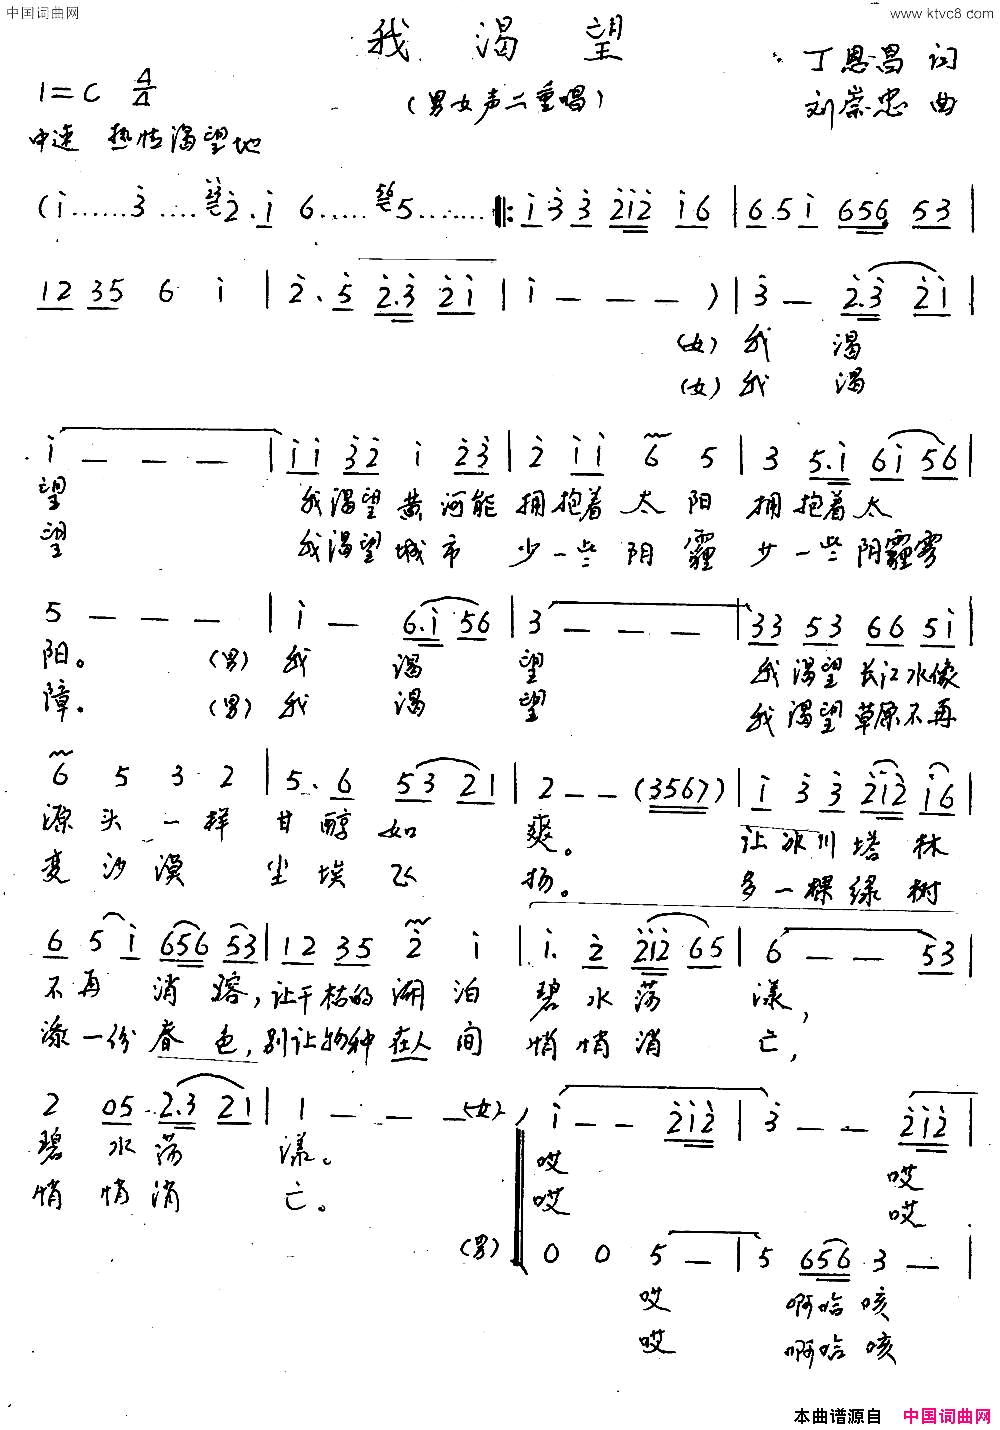 中国词曲网
www.ktvc8.com
我渴望
(男女声二重唱)
丁恩昌 词
刘崇忠 曲
1=C 4/4
中速 热情渴望地
(i……3̇……2̇.i 6……5………‖: i 3̇ 3̇ 2̇i2̇ i6 | 6.5 i 656 53 |
12 35 6 i | 2̇. 5̇ 2̇.3̇ 2̇i | i — — — ) | 3̇ — 2̇.3̇ 2̇i |
(女)我 渴
(女)我 渴
i — — — | i i 3̇2̇ i 2̇3̇ | 2̇ i i 6 5 | 3 5.i 6i 56 |
望 我渴望黄河能 拥抱着太阳 拥抱着太
望 我渴望城市 少一些阴霾 少一些阴霾雾
5 — — — | i — 6.i 56 | 3 — — — | 33 53 66 5i |
阳。 (男)我 渴 望 我渴望长江水像
障。 (男)我 渴 望 我渴望草原不再
6 5 3 2 | 5. 6 53 21 | 2 — — (3567) | i 3̇ 3̇ 2̇i2̇ i6 |
源头一样 甘醇如 爽。 让冰川塔林
变沙漠 尘埃飞 扬。 多一棵绿树
6 5 i 656 53 | 12 35 2̇ i | i. 2̇ 2̇i2̇ 65 | 6 — — 53 |
不再消溶,让干枯的湖泊 碧水荡 漾,
添一份春色,别让物种在人间 悄悄消 亡,
2 05 2.3 21 | 1 — — — (女) i — — 2̇i2̇ | 3̇ — — 2̇i2̇ |
碧水荡 漾。 哎 哎
悄悄消 亡。 哎 哎
(男) 0 0 5 — | 5 656 3 — |
哎 啊哈咳
哎 啊哈咳
本曲谱源自 中国词曲网